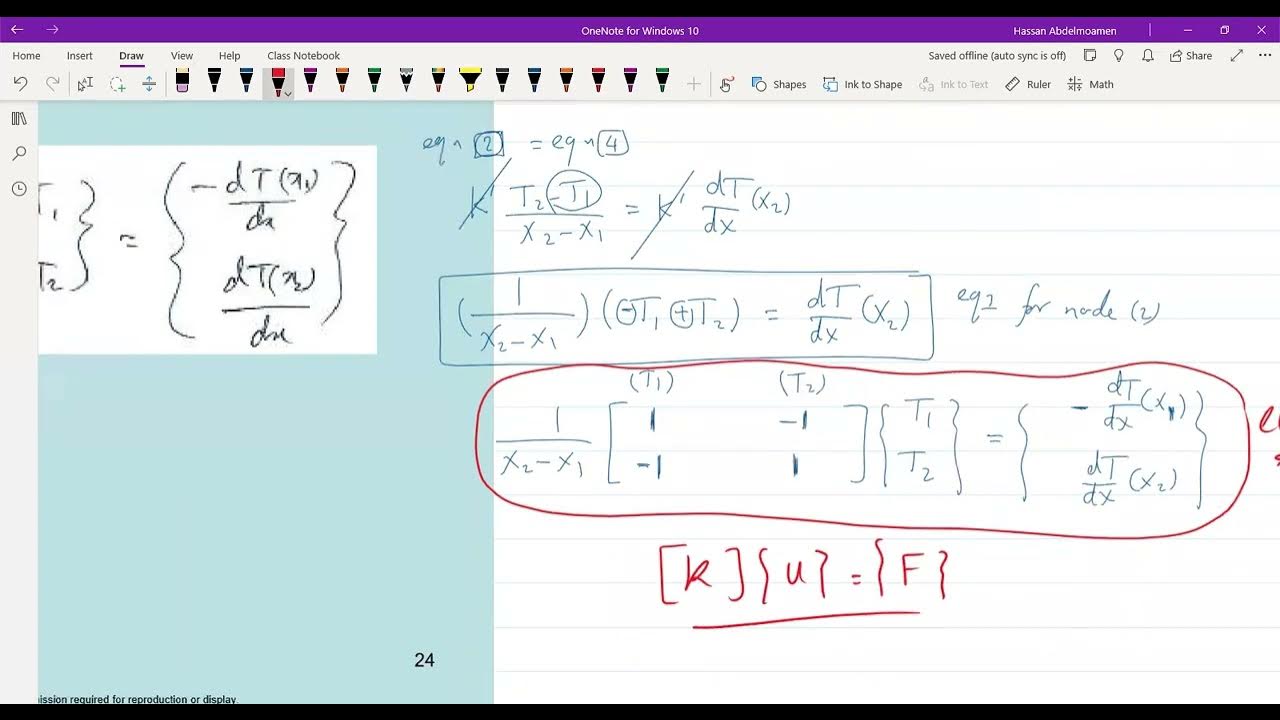 OneNote for Windows 10
Hassan Abdelmoamen
Home Insert Draw View Help Class Notebook
Saved offline (auto sync is off) Share
Shapes Ink to Shape Ink to Text Ruler Math
T₁
T₂
=
-dT(x₁)/dx
dT(x₂)/dx
24
ission required for reproduction or display.
eqn 2 = eqn 4
K' (T₂ - T₁)/(x₂ - x₁) = K' dT/dx (x₂)
(1/(x₂ - x₁)) (-T₁ + T₂) = dT/dx (x₂) eq2 for node (2)
(T₁) (T₂)
1/(x₂ - x₁) [1 -1; -1 1] {T₁; T₂} = {- dT/dx (x₁); dT/dx (x₂)}
[K]{u} = {F}